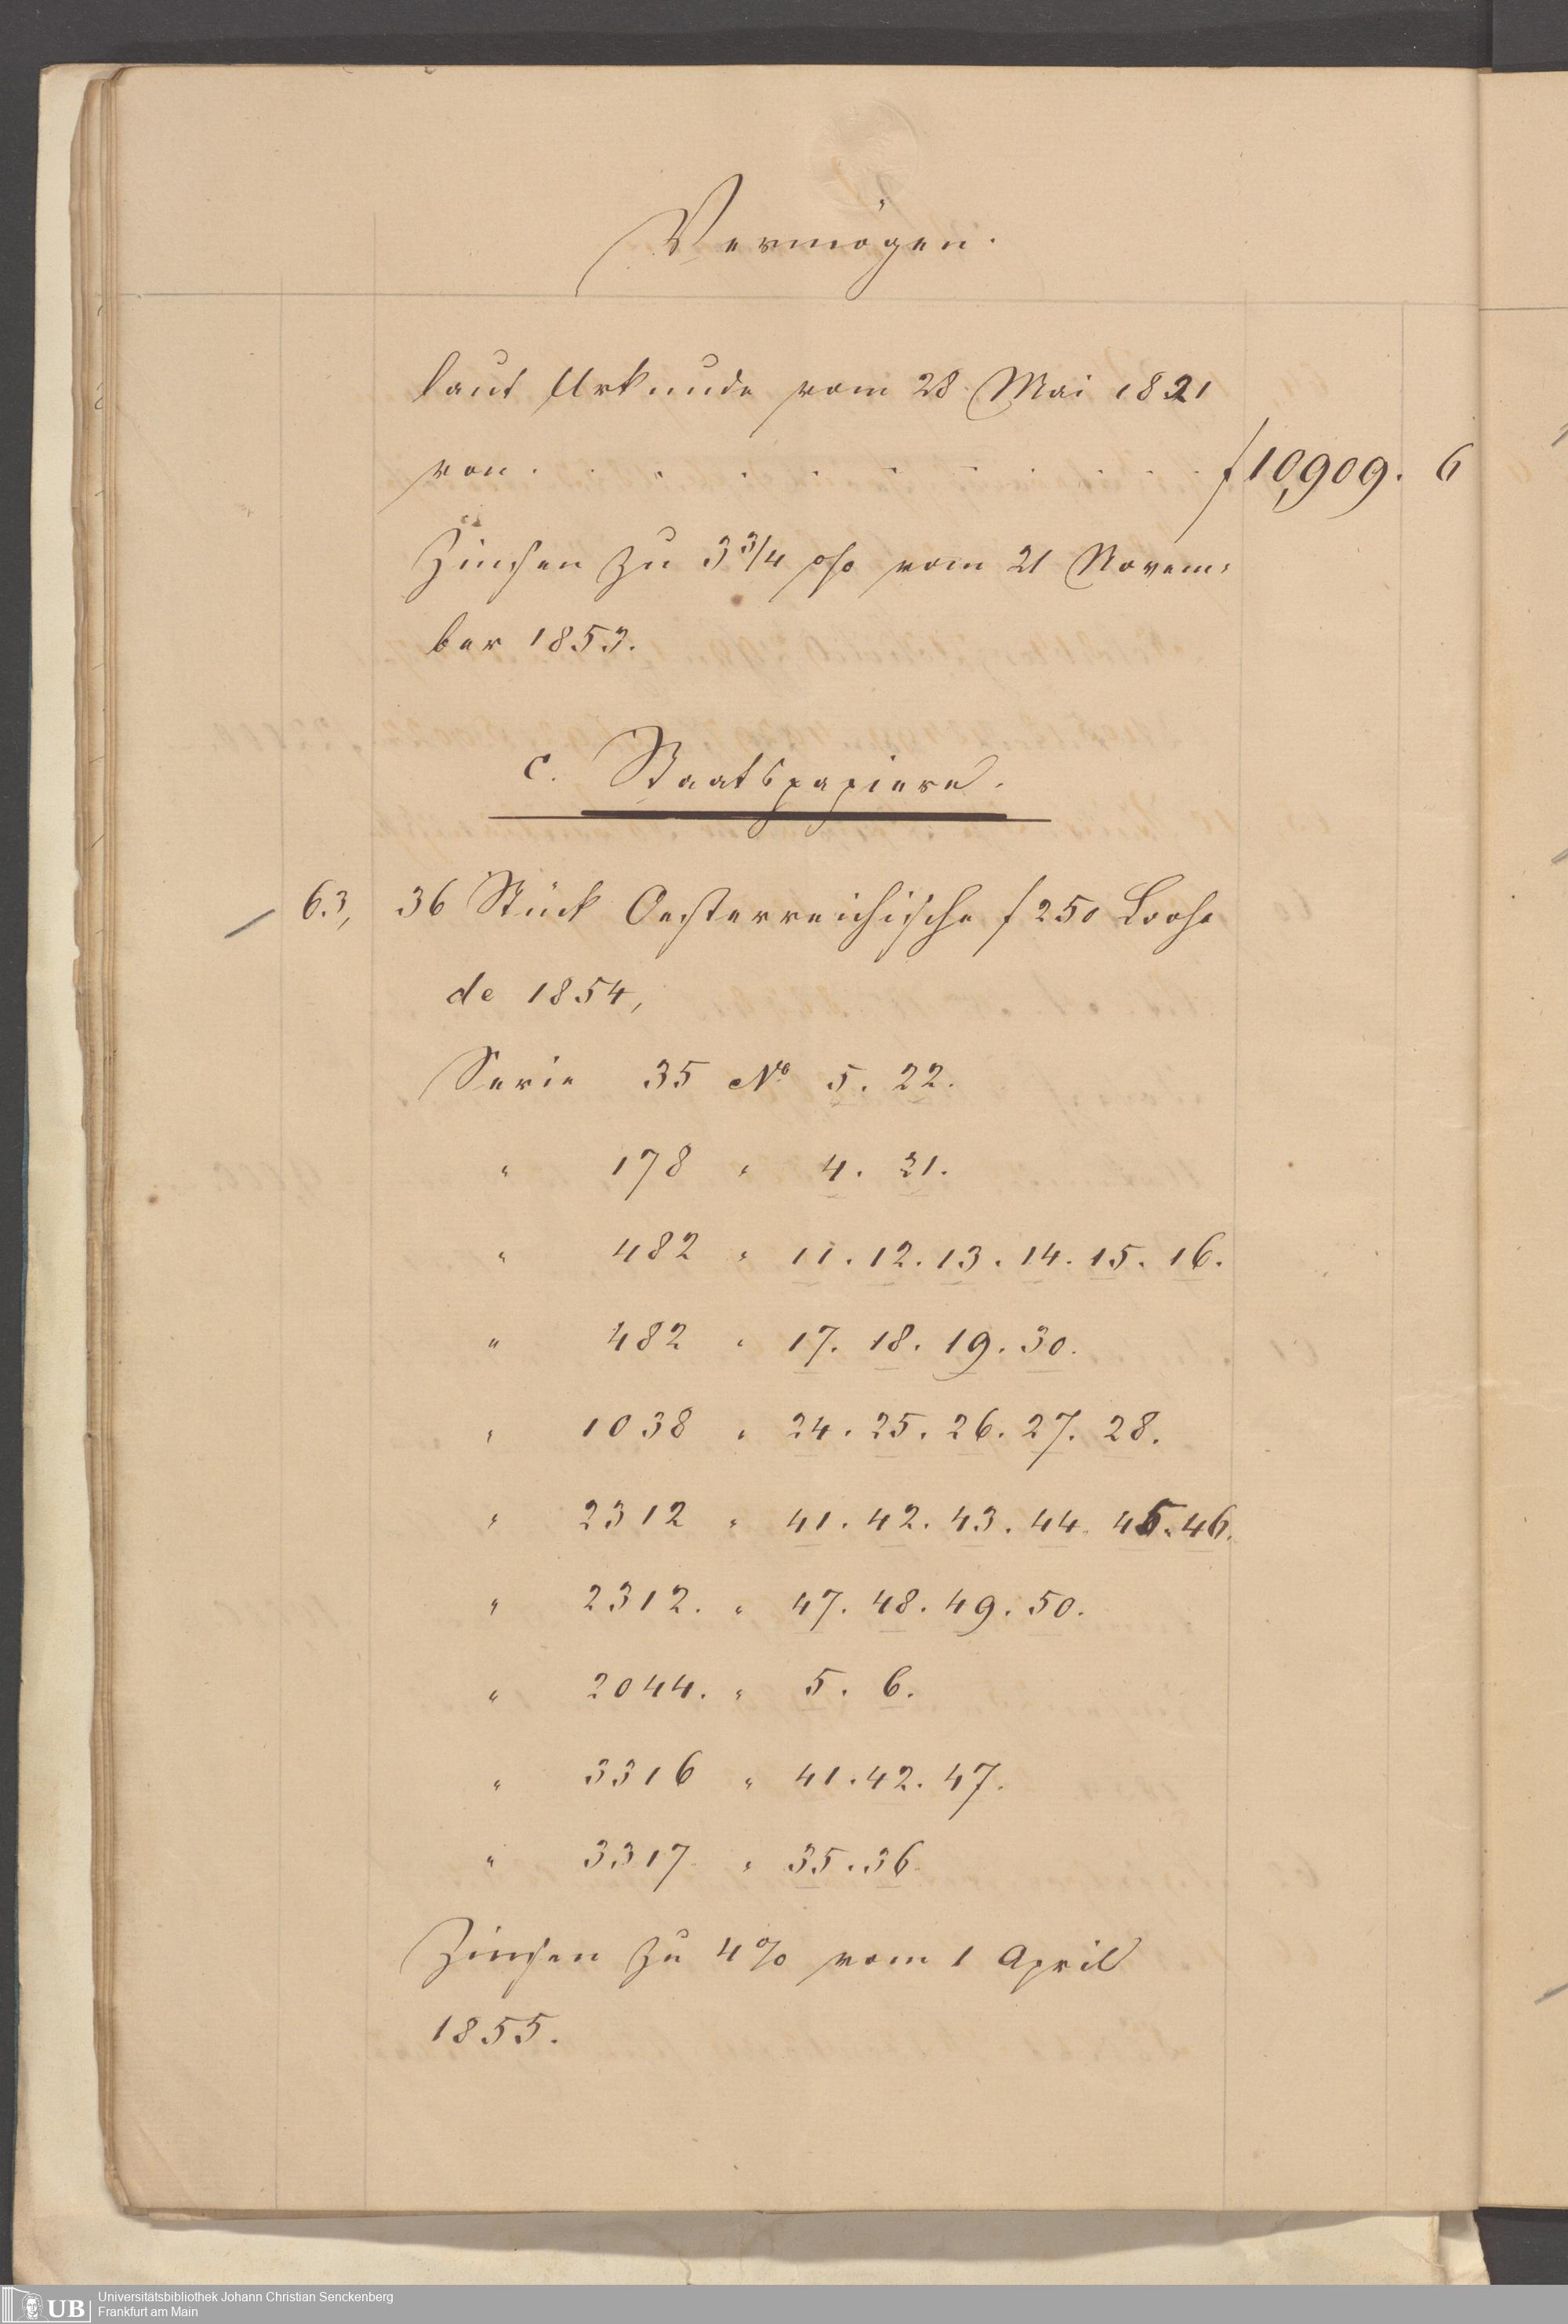 Vermögen.
laut Urkunde vom 28. Mai 1821
von . . . . . . . . . f 10,909. 6
Zinsen zu 3 3/4 % vom 21 Novem-
ber 1853.
c. Staatspapiere.
63, 36 Stück Oesterreichische f 250 Loose
de 1854,
Serie 35 No 5. 22.
" 178 " 4. 21.
" 482 " 11. 12. 13. 14. 15. 16.
" 482 " 17. 18. 19. 30.
" 1038 " 24. 25. 26. 27. 28.
" 2312 " 41. 42. 43. 44. 45. 46.
" 2312. " 47. 48. 49. 50.
" 2044. " 5. 6.
" 3316 " 41. 42. 47.
" 3317 " 35. 36.
Zinsen zu 4% vom 1 April
1855.
UB Universitätsbibliothek Johann Christian Senckenberg
Frankfurt am Main